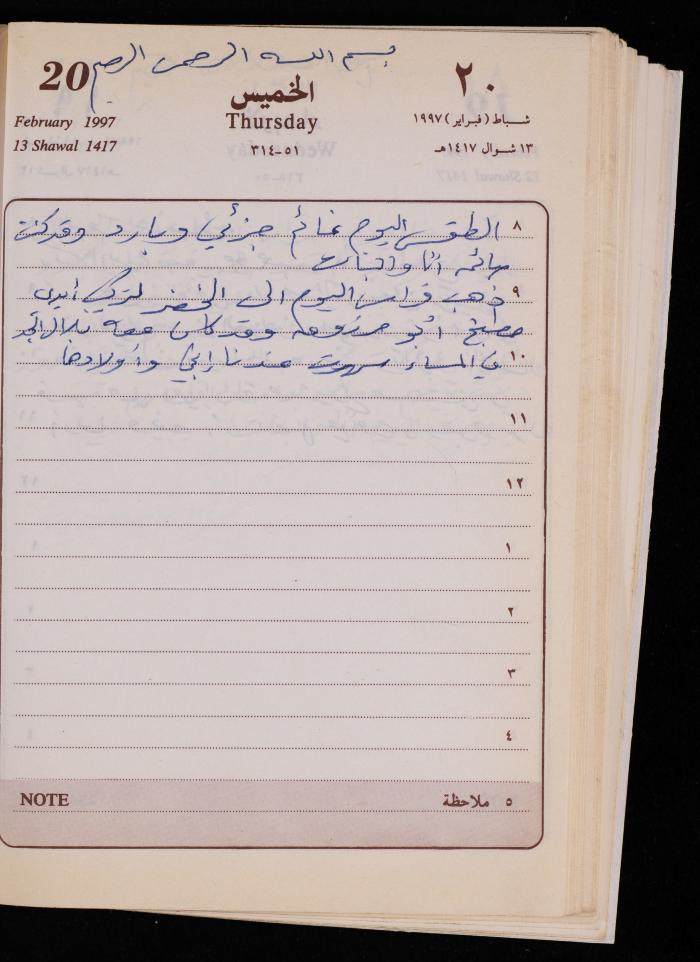 بسم الله الرحمن الرحيم
20
٢٠
الخميس
February 1997
Thursday
شباط (فبراير) ١٩٩٧
13 Shawal 1417
٥١-٣١٤
١٣ شوال ١٤١٧هـ
٨ الطقس اليوم غائم جزئي وبارد وقد كنت
صائمة أنا والبنات
٩ ذهب فراس اليوم الى الخضر لتركيب أيدي
مطبخ أبو وقد كان معه بلال
١٠ في المساء سهرت عندنا وأولادها
١١
١٢
١
٢
٣
٤
NOTE
٥ ملاحظة